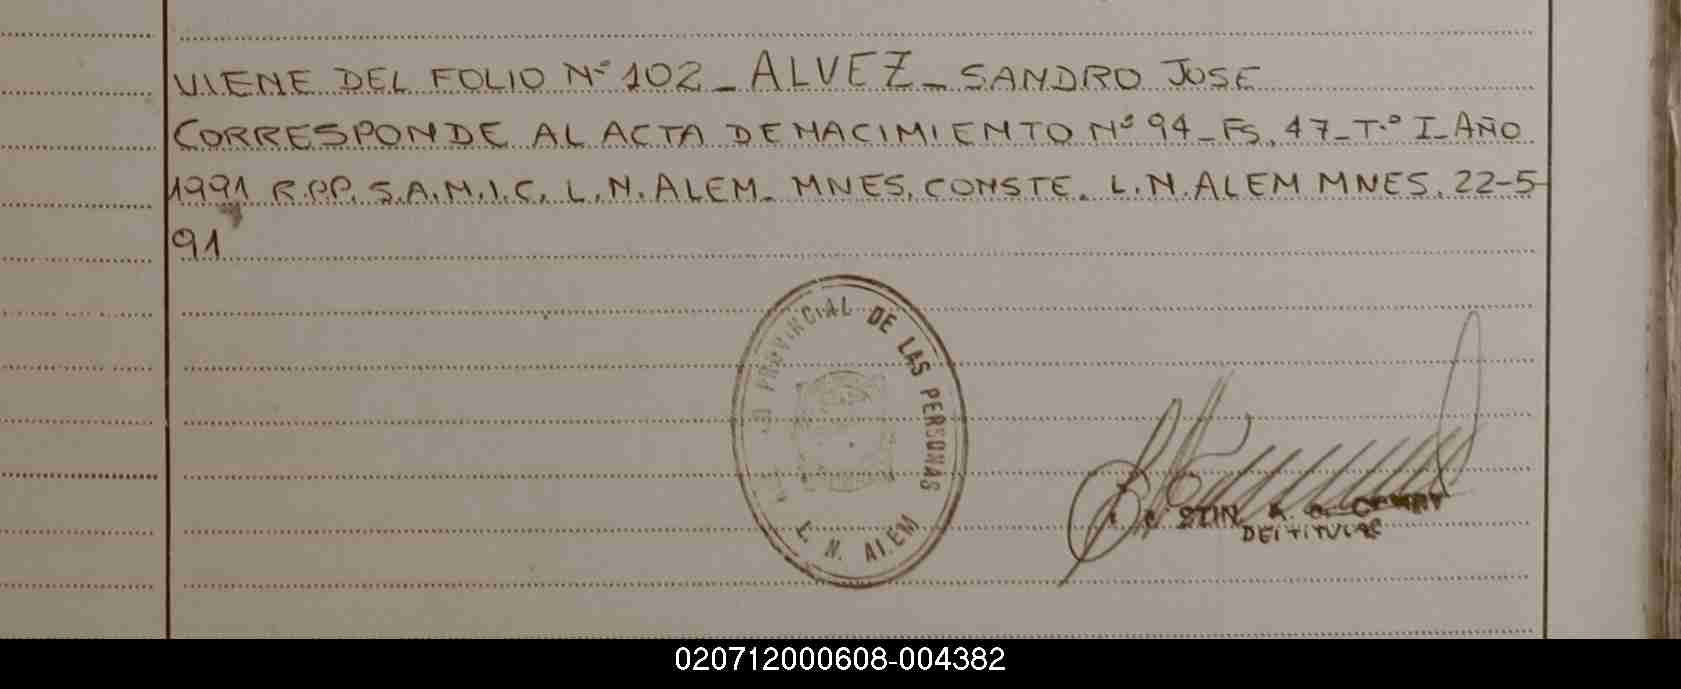 VIENE DEL FOLIO Nº 102_ ALVEZ_ SANDRO JOSE
CORRESPONDE AL ACTA DE NACIMIENTO Nº 94_ Fs. 47_ T.º I_ AÑO
1991 R.P.P. S.A.M.I.C. L.N.ALEM_ MNES. CONSTE. L.N.ALEM MNES. 22-5-
91
PROVINCIAL DE LAS PERSONAS
L. N. ALEM
020712000608-004382